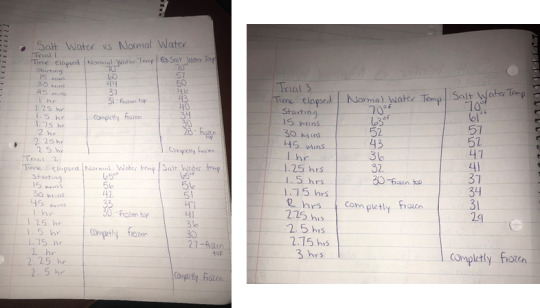 Salt Water vs Normal Water
Trial 1
Time elapsed Normal Water Temp Salt Water Temp
Starting 70° 70°
15 mins 60 57
30 mins 49 50
45 mins 37 46
1 hr 31-frozen top 43
1.25 hr 40
1.5 hr completly frozen 34
1.75 hr 30
2 hr 28 frozen top
2.25 hr
2.5 hr Completly frozen
Trial 2
Time elapsed Normal Water temp Salt water temp
Starting 65° 65°
15 mins 56 56
30 mins 42 51
45 mins 33 47
1 hr 30-frozen top 41
1.25 hr 36
1.5 hr completly frozen 30
1.75 hr 27-frozen top
2 hr
2.25 hr
2.5 hr Completly frozen
Trial 3
Time elapsed Normal Water Temp Salt Water Temp
Starting 70°F 70°F
15 mins 63°F 61°
30 mins 52 57
45 mins 43 52
1 hr 36 47
1.25 hrs 32 41
1.5 hrs 30-frozen top 37
1.75 hrs 34
2 hrs completly frozen 31
2.25 hrs 29
2.5 hrs
2.75 hrs
3 hrs completly frozen